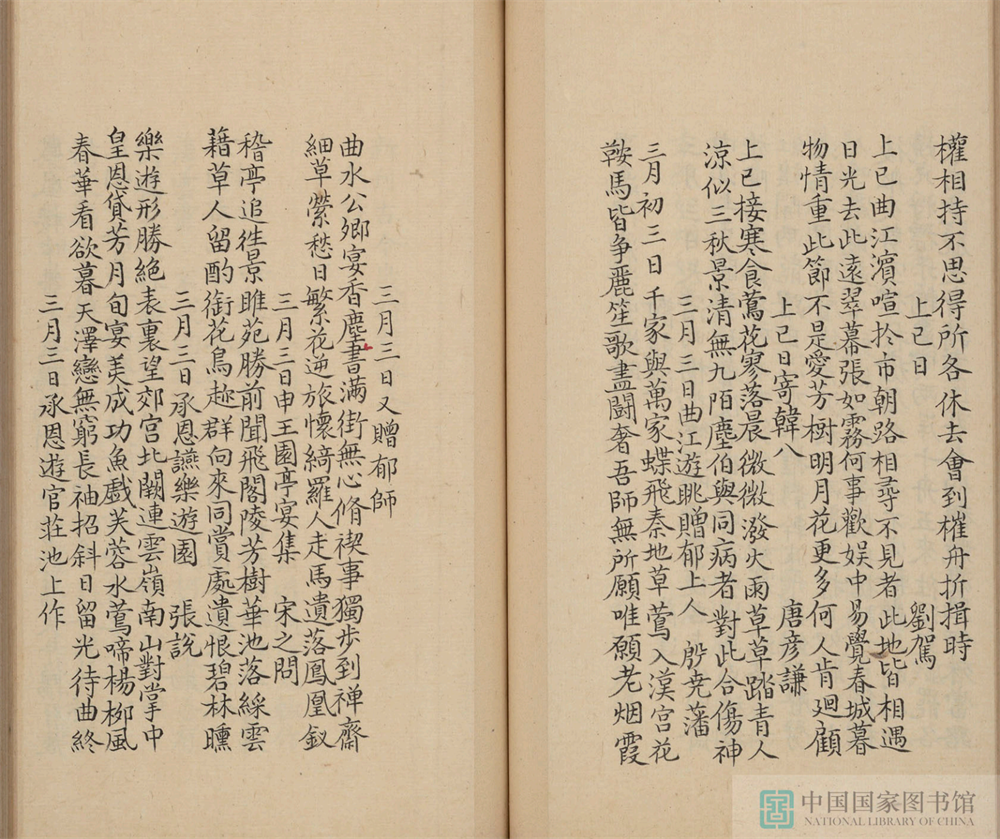 權相持不思得所各休去會到權舟折揖時
上巳日 劉駕
上巳曲江濱喧扵市朝路相尋不見者此地皆相遇
日光去此遠翠幕張如霧何事歡娱中易覺春城暮
物情重此節不是愛芳樹明月花更多何人肯廻顧
上巳日寄韓八 唐彦謙
上巳接寒食鶯花寥落晨微微潑火雨草草踏青人
涼似三秋景清無九陌塵伯與同病者對此合傷神
三月三日曲江遊眺贈郁上人 殷尭藩
三月初三日千家與萬家蝶飛秦地草鶯入漢宫花
鞍馬皆争麗笙歌盡鬭奢吾師無所願唯願老烟霞
三月三日又贈郁師
曲水公卿宴香塵書满街無心脩禊事獨步到禅齋
細草縈愁日繁花逆旅懷綺羅人走馬遺落鳳凰釵
三月三日申王園亭宴集 宋之問
稽亭追徃景睢苑勝前聞飛閣陵芳樹華池落綵雲
藉草人留酌銜花鳥趂群向來同賞處遺恨碧林曛
三月三日承恩讌樂遊園 張說
樂遊形勝絶表裏望郊宫北闕連雲嶺南山對掌中
皇恩貸芳月旬宴美成功魚戲芙蓉水鶯啼楊桞風
春華看欲暮天澤戀無窮長袖招斜日留光待曲終
三月三日承恩遊官莊池上作
中国国家图书馆
NATIONAL LIBRARY OF CHINA